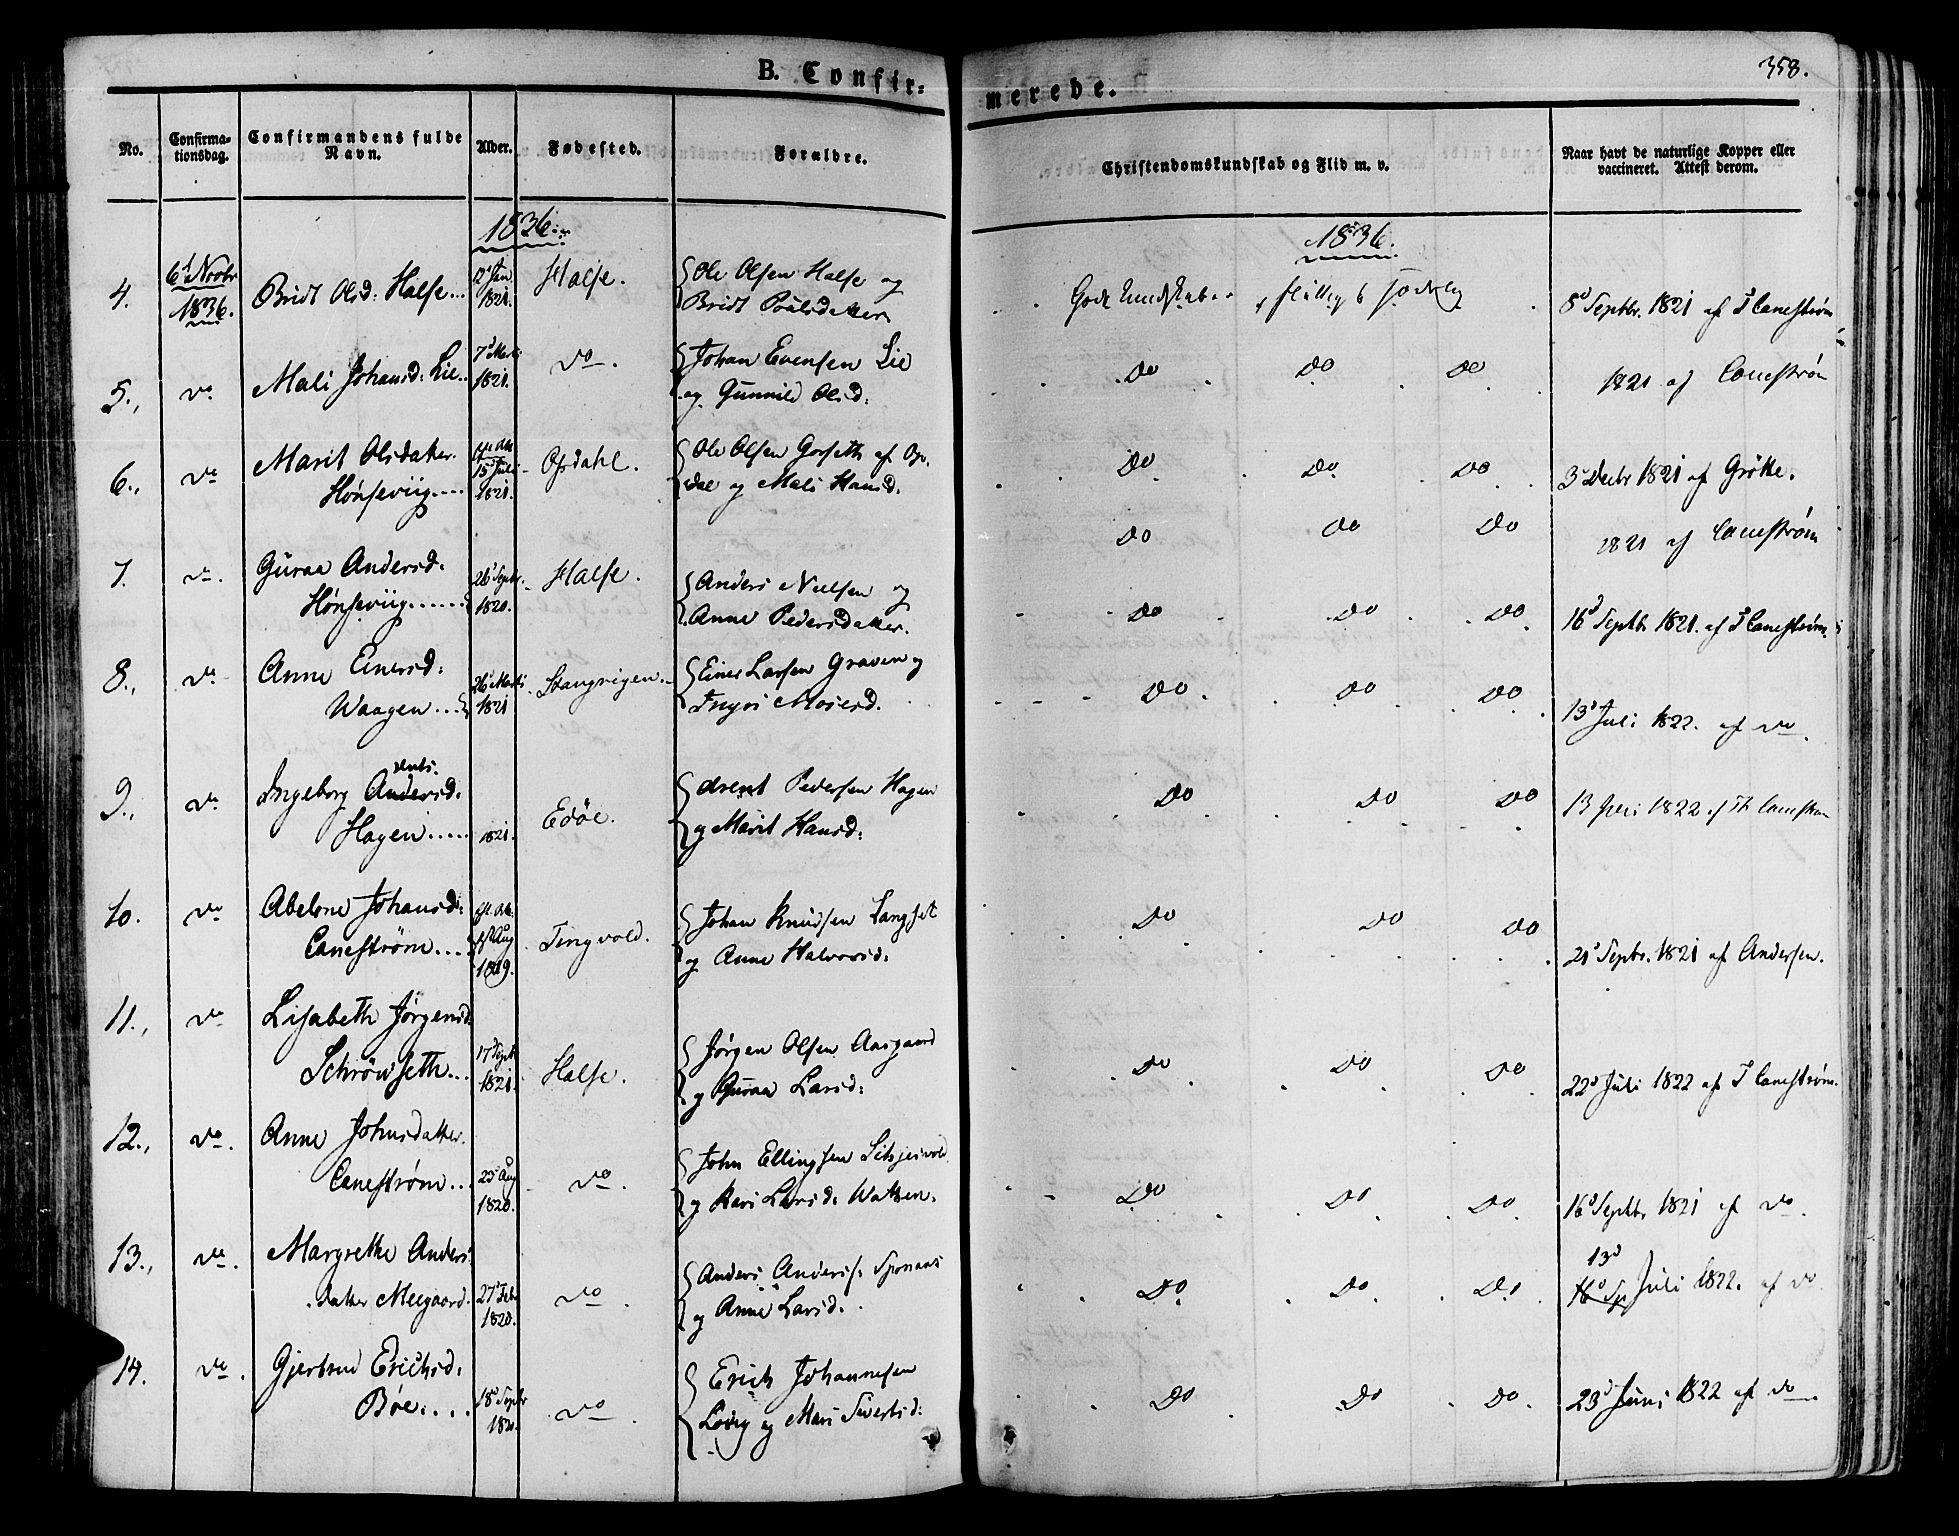 358.
B. Confir=
merede.
No.
Confirma-
tionsdag.
Confirmandens fulde
Navn.
Alder.
Fødested.
Forældre.
Christendomskundskab og Flid m. v.
Naar havt de naturlige Kopper eller
vaccineret. Attest derom.
1836.
1836.
4.
6d Novbr
1836.
Bridt Olsd: Halse...
12 Jan
1821.
Halse.
Ole Olsen Halse og
Bridt Poulsdatter
Gode Kundskaber
8d Septbr. 1821 af T Canestrøm
5.,
do
Mali Johansd: Lie..
7d Marti
1821.
do.
Johan Evensen Lie
og Gunnild Olsd:
Do Do Do
1821 af Canestrøm
6.,
do
Marit Olsdatter
Hønseviig....
15 Juli
1821.
Opdahl.
Ole Olsen Gorseth af Op.
dal og Mali Hansd.
Do Do Do
3d Decbr 1821 af Grøtte.
7.
do.
Guraa Andersd.
Hønseviig......
26d Septbr.
1820.
Halse.
Anders Nielsen og
Anne Pedersdatter.
Do Do Do
1821 af Canestrøm
8.,
do
Anne Einersd:
Waagen...
26d Marti
1821
Stangvigen.
Einer Larsen Graven og
Ingri Mosesd.
Do Do Do
16d Septbr 1821. af T Canestrøm.
Do Do Do
13d Juli 1822. af do.
9.,
do
Ingeborg Andersd:
Hagen.....
1821.
Edöe.
Arent Pedersen Hagen
og Marit Hansd:
Do Do Do
13 Juli 1822 af Th Canestrøm
10.
do
Abelone Johansd:
Canestrøm....
Aug
1819.
Tingvold.
Johan Knudsen Langset
og Anne Halvorsd:
Do Do Do
21d Septbr. 1821 af Andersen.
11.,
do
Lisabeth Jørgensd:
Schrövseth...
17d Septb
1821.
Halse.
Jørgen Olsen Aasgaard
og Guraa Larsd:
Do Do Do
22d Juli 1822 af T Canestrøm.
12.,
do.
Anne Johnsdatter
Canestrøm...
23d Aug
1820.
do.
John Ellingsen
og Kari Larsd: Watten.
Do Do Do
16d Septbr 1821 af do.
13.,
do.
Margrethe Anders
datter Meegaard.
27d Feb
1820.
do.
Anders Anders:
og Anne Larsd:
Do Do Do
13d
16d Sp Juli 1822. af do
14.
do.
Gjertrud Erichsd:
Böe....
18d Septbr
1820.
do.
Erich Johannesen
og Mari Sivertsd:
Do Do Do
23d Juni 1822 af do.